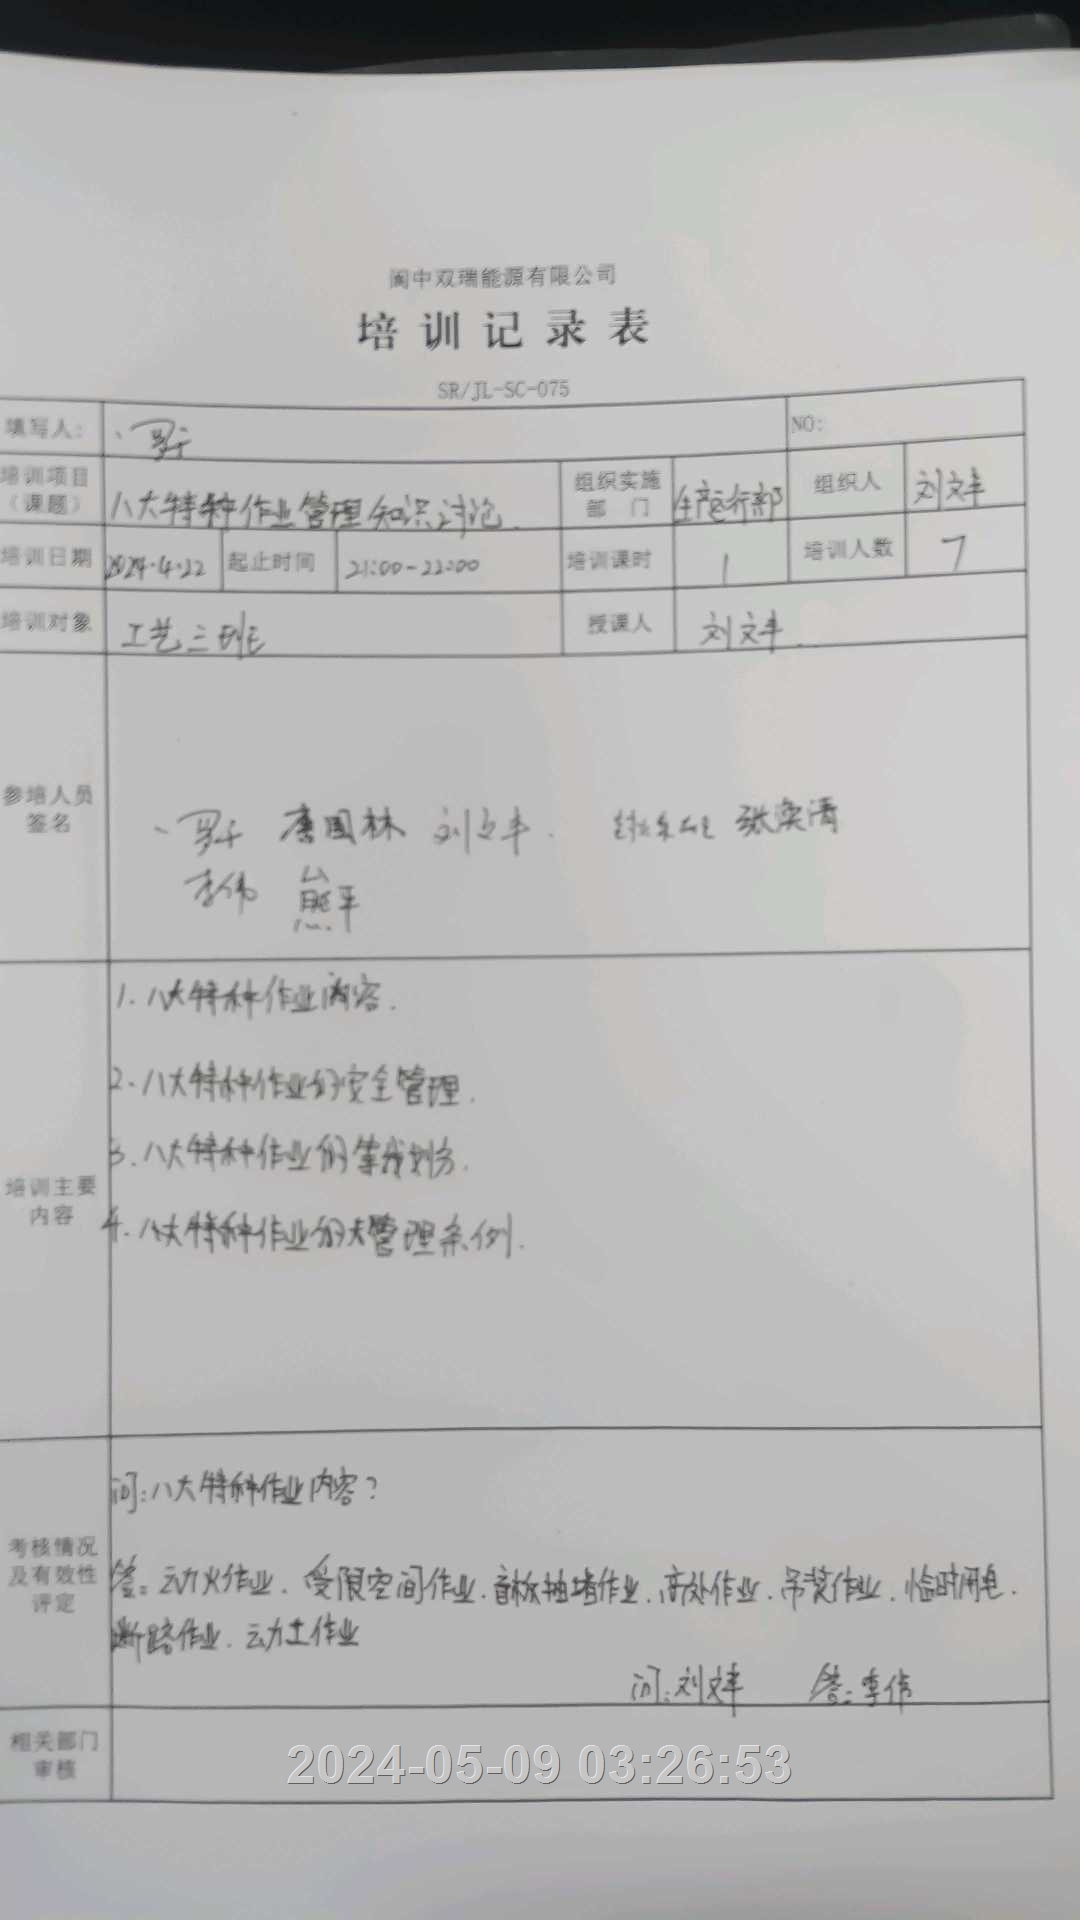 阆中双瑞能源有限公司
培训记录表
SR/JL-SC-075
填写人： 罗千 NO:
培训项目（课题） 八大特种作业管理知识讨论. 组织实施部门 生产运行部 组织人 刘文丰
培训日期 2024.4.22 起止时间 21:00-22:00 培训课时 1 培训人数 7
培训对象 工艺三班 授课人 刘文丰
参培人员签名
罗千 唐国林 刘文丰 张奕清
李伟 熊平
培训主要内容
1.八大特种作业内容.
2.八大特种作业的安全管理.
3.八大特种作业的等级划分.
4.八大特种作业的管理条例.
考核情况及有效性评定
问:八大特种作业内容?
答:动火作业.受限空间作业.盲板抽堵作业.高处作业.吊装作业.临时用电.
断路作业.动土作业
问:刘文丰 答:李伟
相关部门审核
2024-05-09 03:26:53